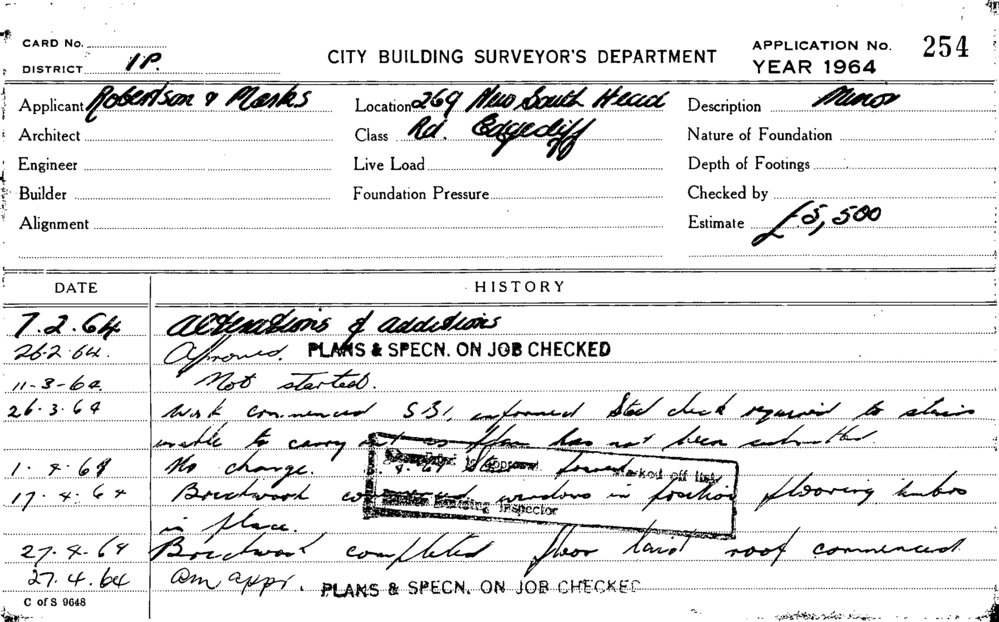 CARD No.
DISTRICT 1P.
CITY BUILDING SURVEYOR'S DEPARTMENT
APPLICATION No. 254
YEAR 1964
Applicant Robertson & Marks
Location 269 New South Head
Description Minor
Architect
Class Rd. Edgecliff
Nature of Foundation
Engineer
Live Load
Depth of Footings
Builder
Foundation Pressure
Checked by
Alignment
Estimate £5,500
DATE HISTORY
7.2.64 Alterations & additions
26.2.64. Approved. PLANS & SPECN. ON JOB CHECKED
11-3-64. Not started.
26.3.64 Work commenced S.B.I. informed Steel check required to stairs
unable to carry out as plan has not been submitted.
1.4.64 No change.
17.4.64 Brickwork windows in position flooring timbers
in place.
Building Inspector
27.4.64 Brickwork completed floor laid roof commenced.
27.4.64 Am appr. PLANS & SPECN. ON JOB CHECKED
C of S 9648